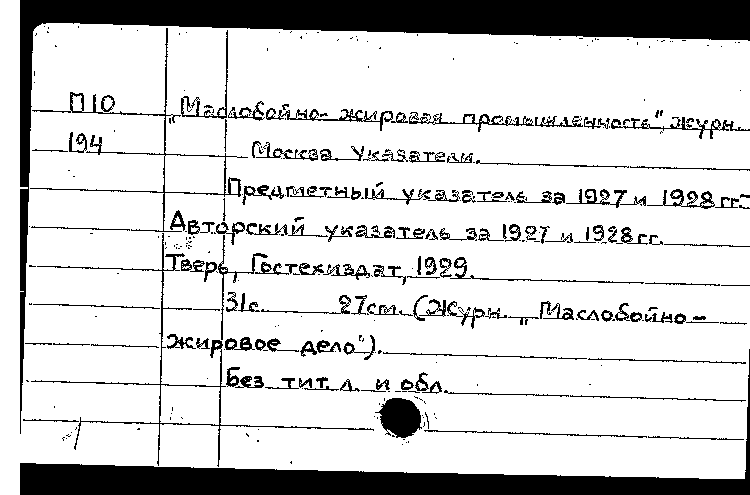 П10 „Маслобойно-жировая промышленность", журн.
194 Москва. Указатели.
Предметный указатель за 1927 и 1928 гг.-
Авторский указатель за 1927 и 1928 гг.
Тверь, Гостехиздат, 1929.
31с. 27см. (Журн. „Маслобойно-
жировое дело").
Без тит. л. и обл.